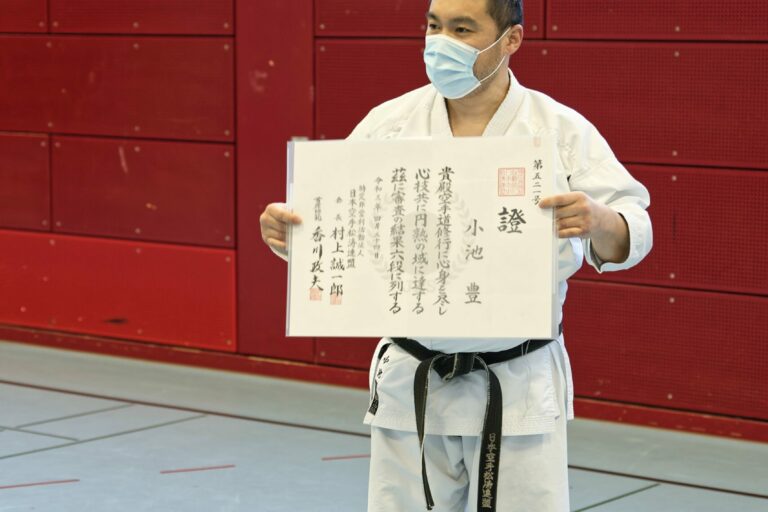 第五二一号
證
小池 豊
貴殿空手道修行に心身を尽し
心技共に円熟の域に達する
茲に審査の結果六段に列する
令和三年四月二十四日
特定非営利活動法人
日本空手松涛連盟
会長 村上誠一郎
首席師範 香川政夫
日本空手松涛連盟